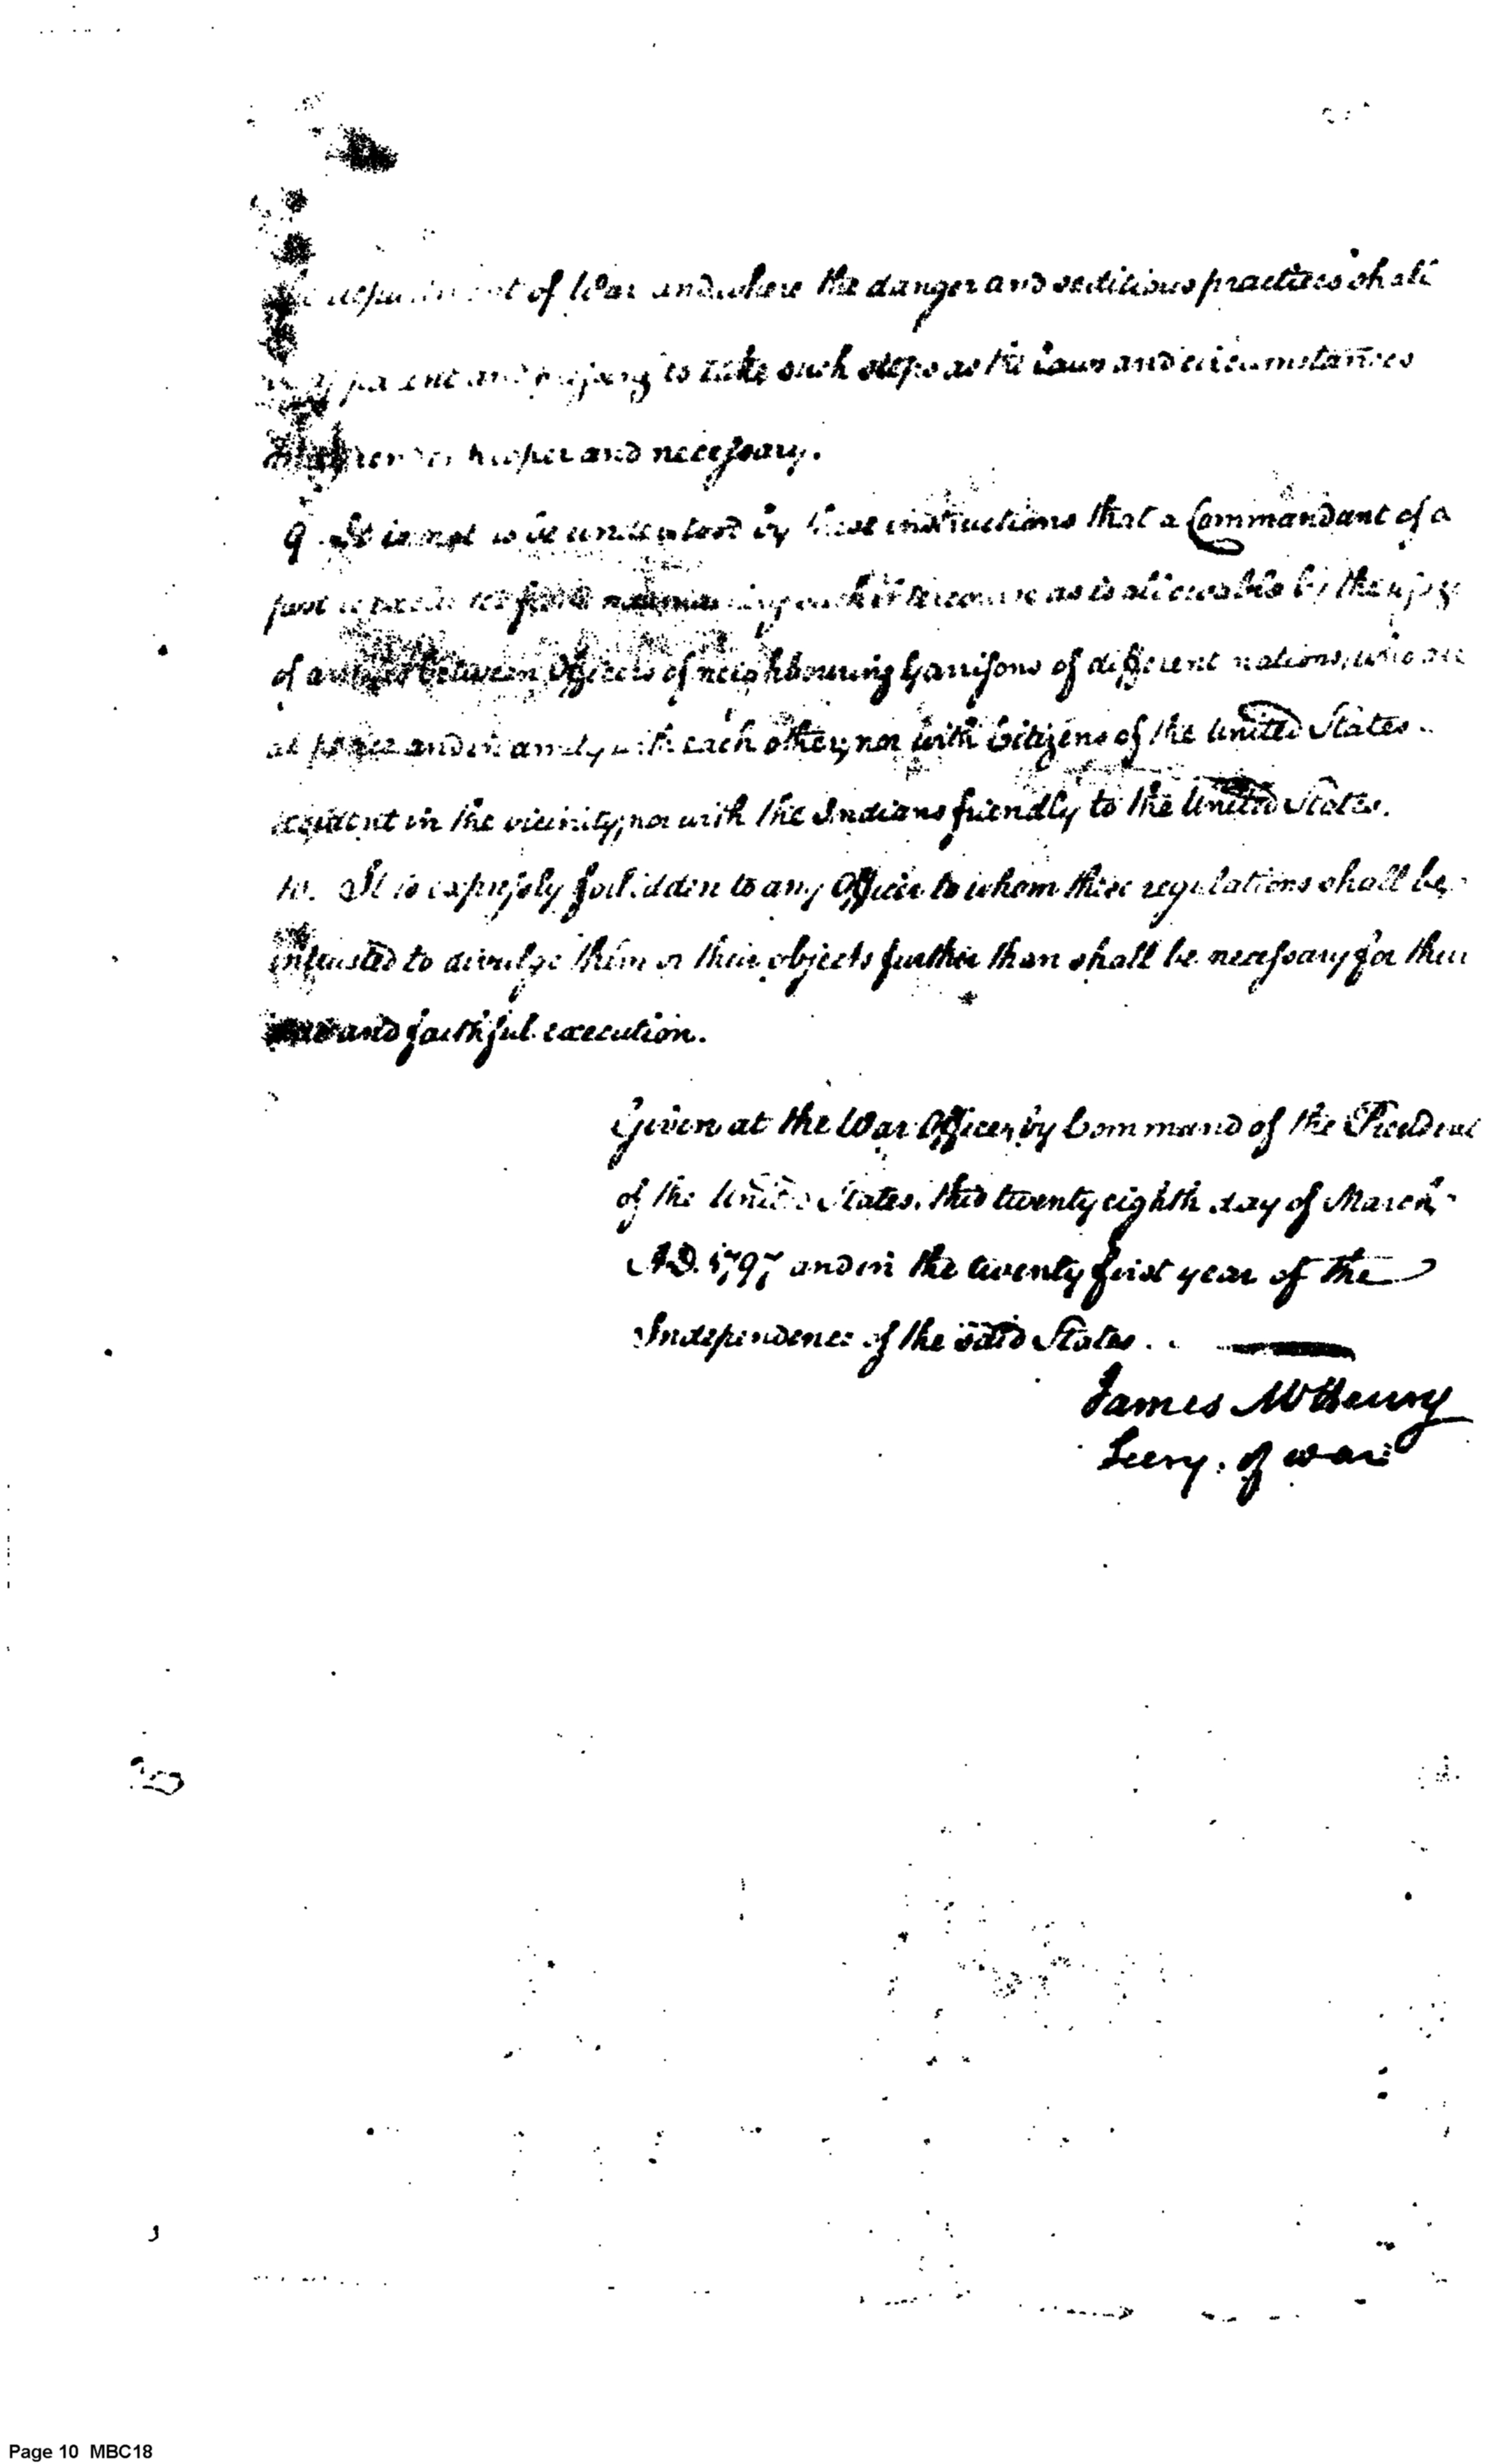 department of War and where the danger and seditious practices shall
apparent and to take such steps as the laws and circumstances
proper and necessary.
9. It is not to be understood by these instructions that a Commandant of a
post is from such intercourse as is allowable by the usage
of between Officers of neighbouring Garrisons of different nations, who are
at peace and in amity with each other, nor with Citizens of the United States
resident in the vicinity, nor with the Indians friendly to the United States.
10. It is expressly forbidden to any Officer to whom these regulations shall be
intrusted to divulge them or their objects further than shall be necessary for their
and faithful execution.
Given at the War Office, by Command of the President
of the United States, this twenty eighth day of March
A.D. 1797 and in the twenty first year of the
Independence of the said States.
James McHenry
Secry. of war
Page 10 MBC18